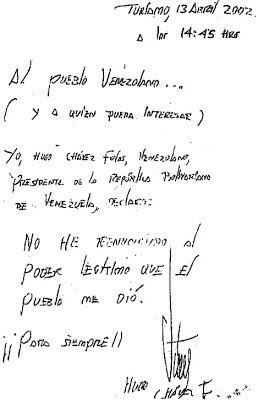 Turiamo, 13 Abril 2002
a las 14:45 HRS
Al pueblo Venezolano...
(y a quien pueda interesar)
Yo, Hugo Chávez Frías, venezolano,
Presidente de la República Bolivariana
de Venezuela, declaro:
No he renunciado al
poder legítimo que el
pueblo me dió.
¡¡Para siempre!!
Hugo Chávez F.